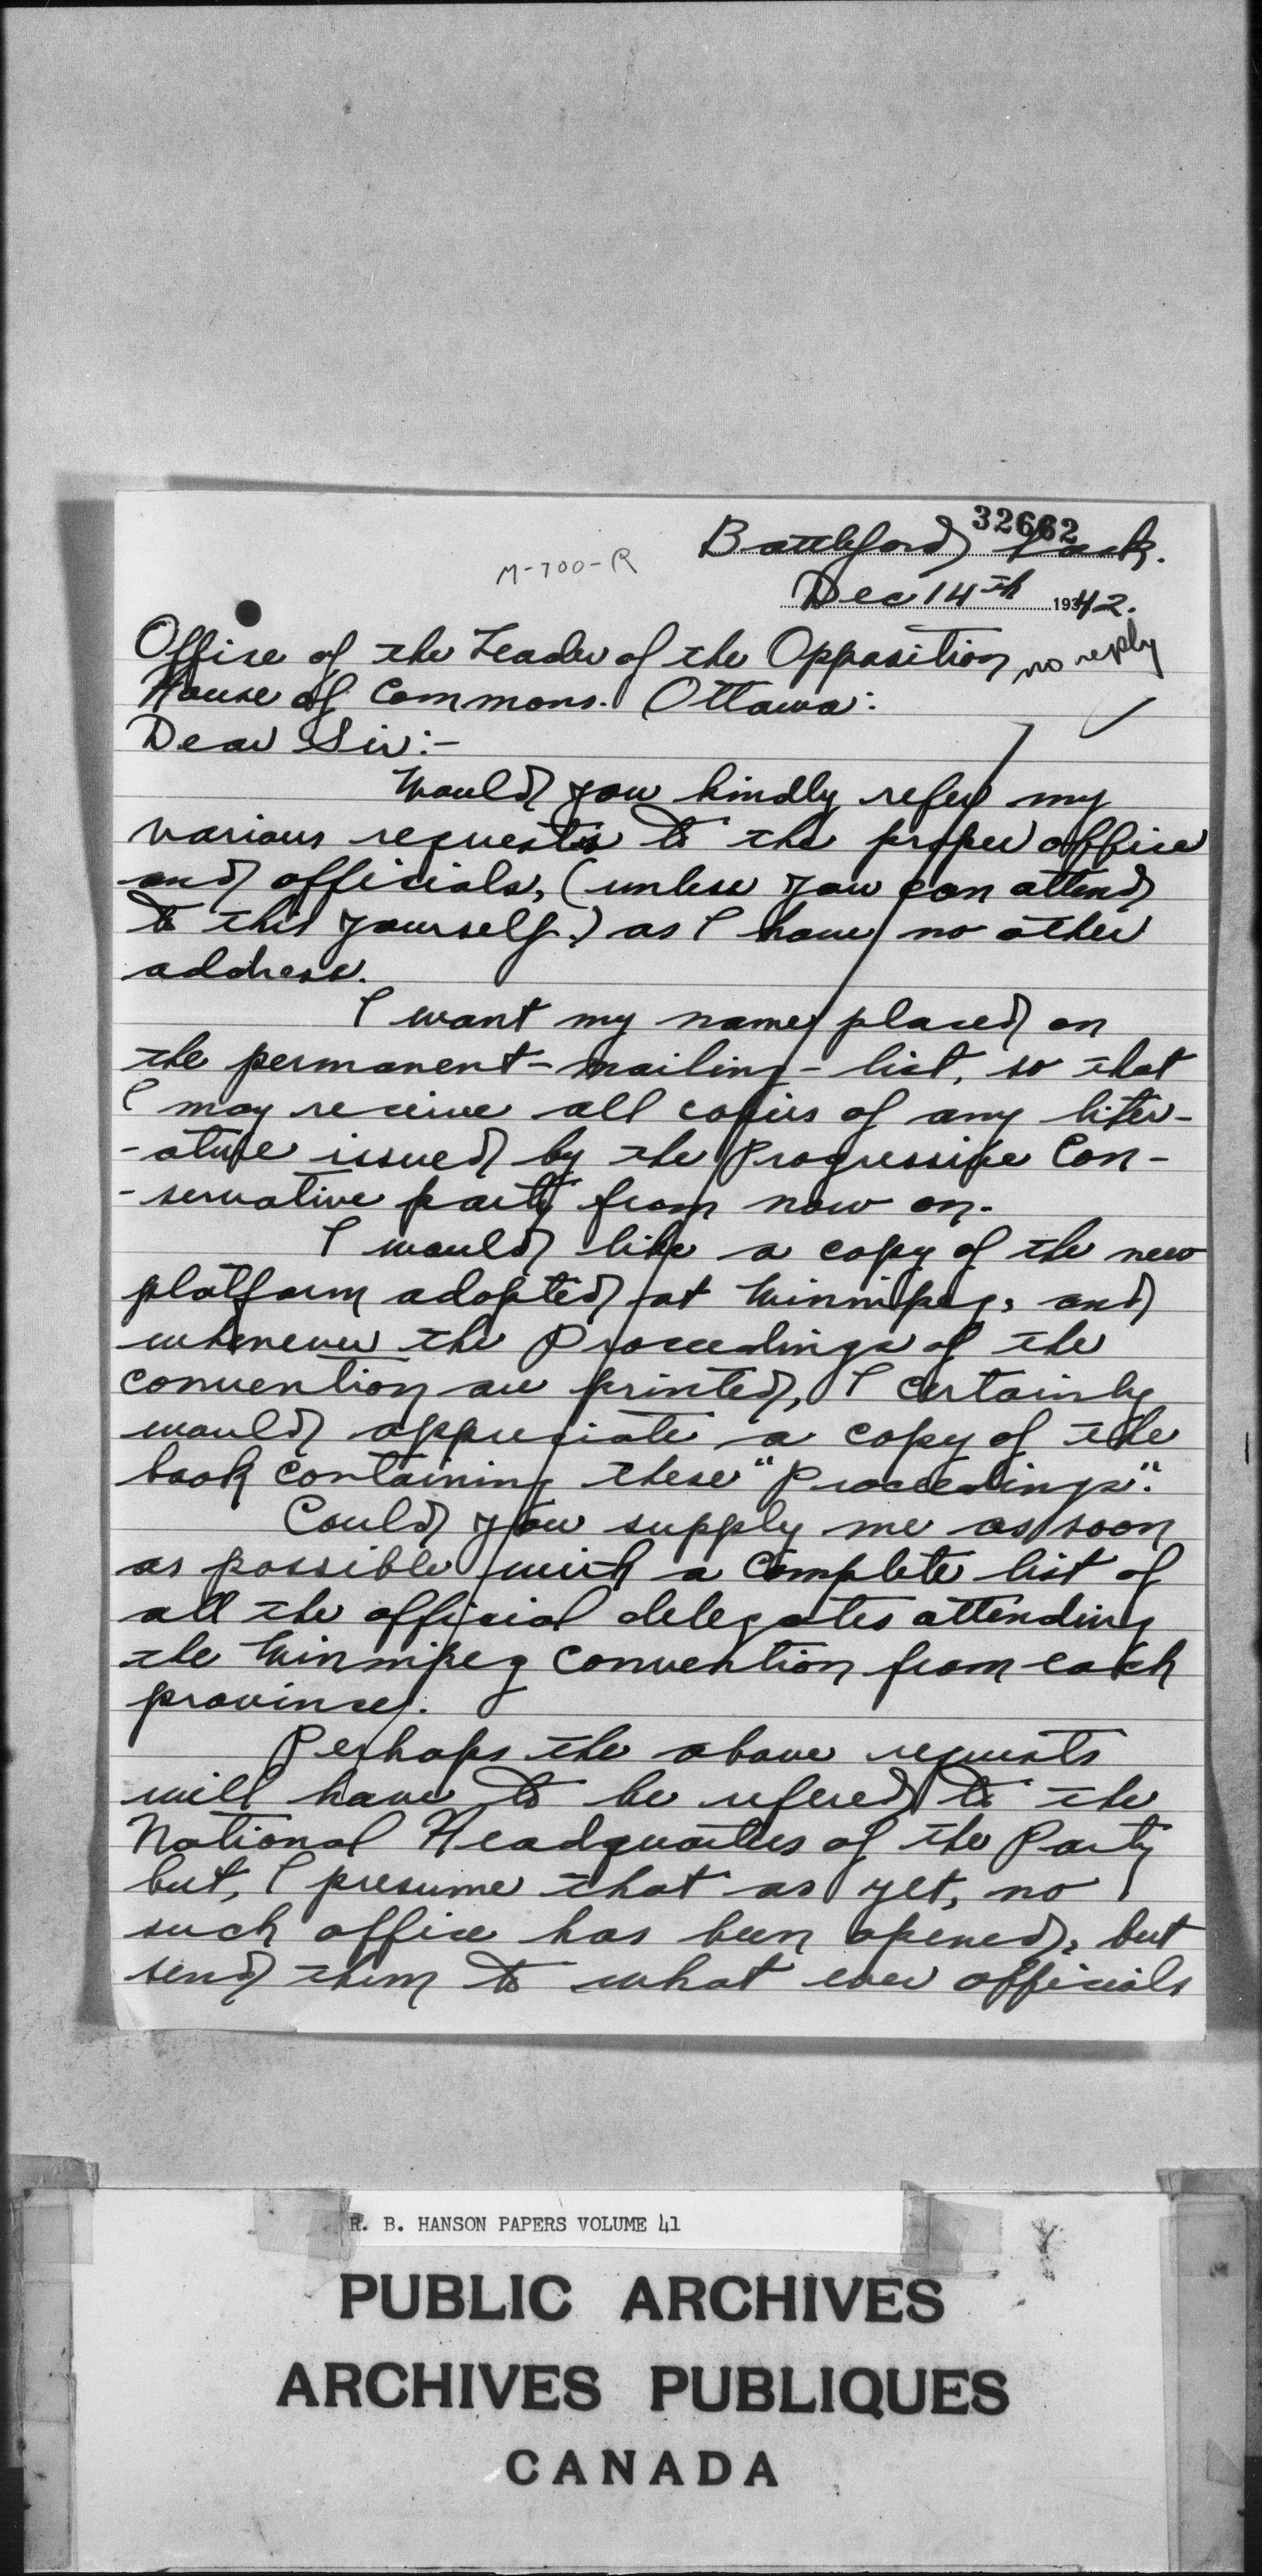 32662
Battleford Sask.
M-700-R
Dec 14th 1942.
Office of the Leader of the Opposition
no reply
House of Commons. Ottawa:
Dear Sir:-
Would you kindly refer my
various requests to the proper office
and officials, (unless you can attend
to this yourself.) as I have no other
address.
I want my name placed on
the permanent-mailing-list, so that
I may receive all copies of any liter-
-ature issued by the Progressive Con-
-servative party from now on.
I would like a copy of the new
platform adopted at Winnipeg, and
whenever the Proceedings of the
convention are printed, I certainly
would appreciate a copy of the
book containing these "Proceedings".
Could you supply me as soon
as possible with a complete list of
all the official delegates attending
the Winnipeg convention from each
province.
Perhaps the above requests
will have to be refered to the
National Headquarters of the Party
but, I presume that as yet, no
such office has been opened, but
send them to what ever officials
R. B. HANSON PAPERS VOLUME 41
PUBLIC ARCHIVES
ARCHIVES PUBLIQUES
CANADA